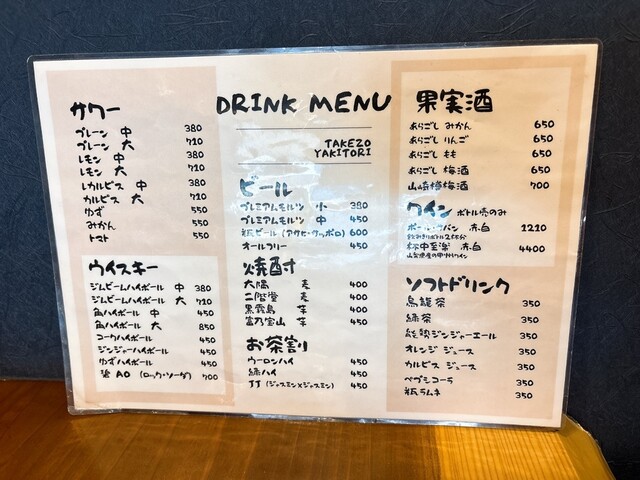 DRINK MENU
TAKEZO
YAKITORI
サワー
プレーン 中 380
プレーン 大 710
レモン 中 380
レモン 大 710
カルピス 中 380
カルピス 大 710
ゆず 550
みかん 550
トマト 550
ウイスキー
ジムビームハイボール 中 380
ジムビームハイボール 大 710
角ハイボール 中 450
角ハイボール 大 850
コークハイボール 450
ジンジャーハイボール 450
ゆずハイボール 450
碧 AO (ロック・ソーダ) 700
ビール
プレミアムモルツ 小 380
プレミアムモルツ 中 450
瓶ビール (アサヒ・サッポロ) 600
オールフリー 450
焼酎
大隅 麦 400
二階堂 麦 400
黒霧島 芋 400
富乃宝山 芋 450
お茶割
ウーロンハイ 450
緑ハイ 450
JJ (ジャスミン×ジャスミン) 450
果実酒
あらごし みかん 650
あらごし りんご 650
あらごし もも 650
あらごし 梅酒 650
山崎樽梅酒 700
ワイン ボトル売のみ
ポール・サパン 赤・白 1210
飲みきりボトル2杯分
杯中至楽 赤・白 4400
ソフトドリンク
烏龍茶 350
緑茶 350
能勢ジンジャーエール 350
オレンジ ジュース 350
カルピス ジュース 350
ペプシコーラ 350
瓶ラムネ 350